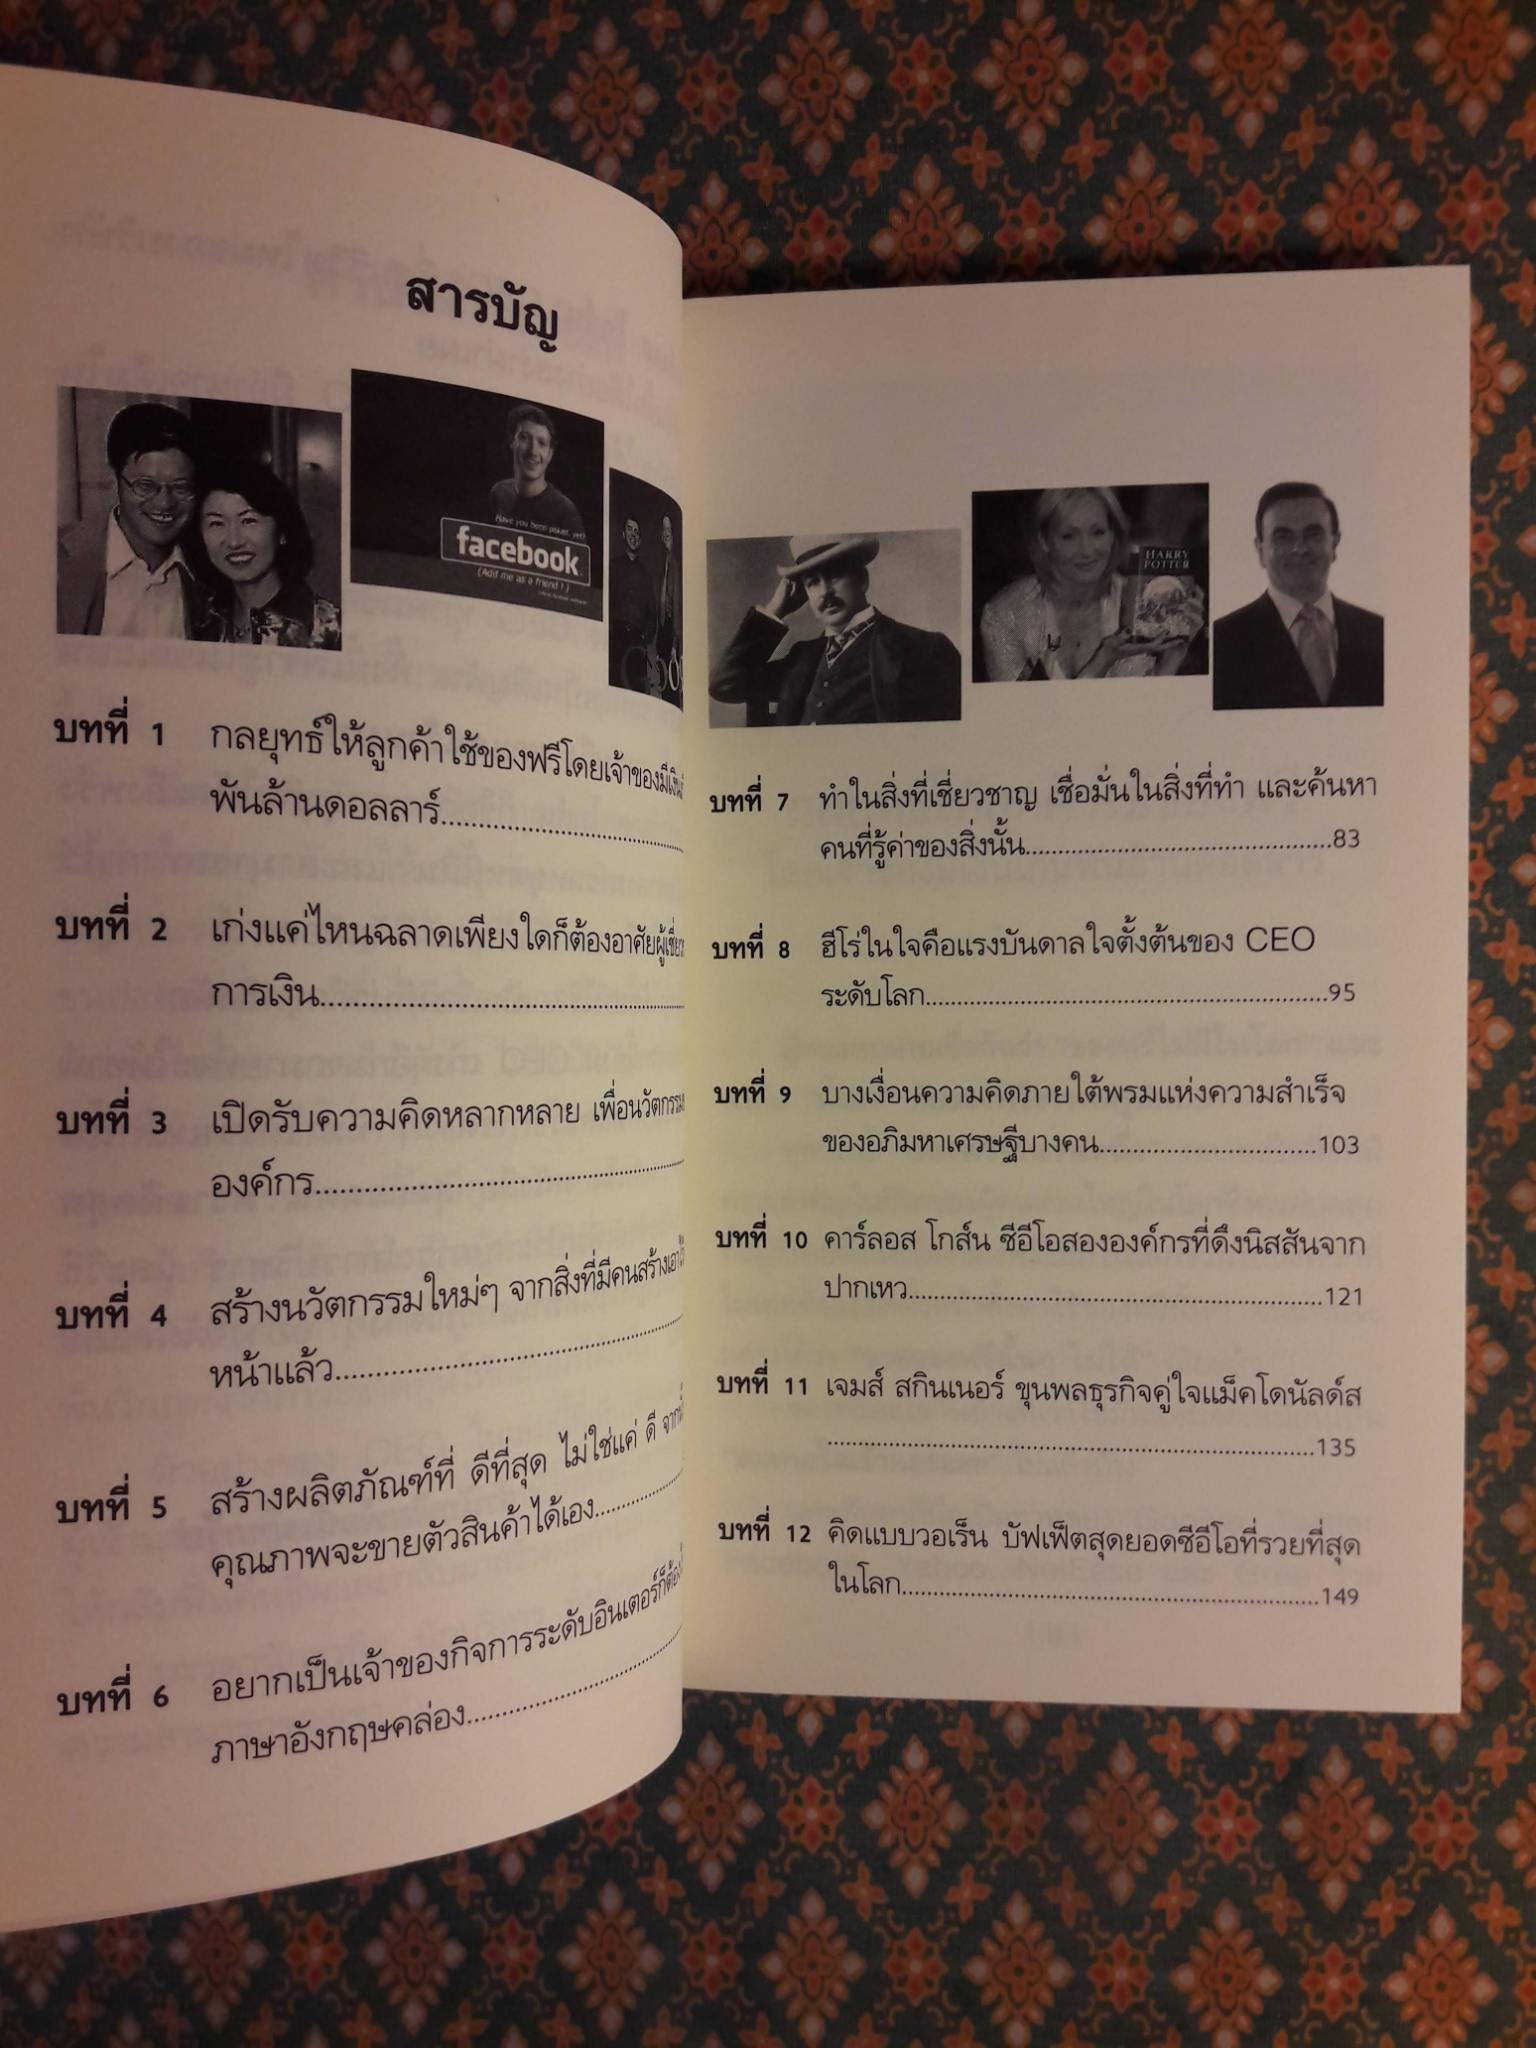 สารบัญ
Have you been poked, yet?
facebook
(Add me as a friend!)
บทที่ 1 กลยุทธ์ให้ลูกค้าใช้ของฟรีโดยเจ้าของมีเงิน
พันล้านดอลลาร์
บทที่ 2 เก่งแค่ไหนฉลาดเพียงใดก็ต้องอาศัย
การเงิน
บทที่ 3 เปิดรับความคิดหลากหลาย เพื่อนวัตกรรม
องค์กร
บทที่ 4 สร้างนวัตกรรมใหม่ๆ จากสิ่งที่มีคนสร้าง
หน้าแล้ว
บทที่ 5 สร้างผลิตภัณฑ์ที่ ดีที่สุด ไม่ใช่แค่ ดี
คุณภาพจะขายตัวสินค้าได้เอง
บทที่ 6 อยากเป็นเจ้าของกิจการระดับอินเตอร์ก็ต้อง
ภาษาอังกฤษคล่อง
HARRY
POTTER
บทที่ 7 ทำในสิ่งที่เชี่ยวชาญ เชื่อมั่นในสิ่งที่ทำ และค้นหา
คนที่รู้ค่าของสิ่งนั้น 83
บทที่ 8 ฮีโร่ในใจคือแรงบันดาลใจตั้งต้นของ CEO
ระดับโลก 95
บทที่ 9 บางเงื่อนความคิดภายใต้พรมแห่งความสำเร็จ
ของอภิมหาเศรษฐีบางคน 103
บทที่ 10 คาร์ลอส โกส์น ซีอีโอสององค์กรที่ดึงนิสสันจาก
ปากเหว 121
บทที่ 11 เจมส์ สกินเนอร์ ขุนพลธุรกิจคู่ใจแม็คโดนัลด์ส
135
บทที่ 12 คิดแบบวอเร็น บัฟเฟ็ตสุดยอดซีอีโอที่รวยที่สุด
ในโลก 149